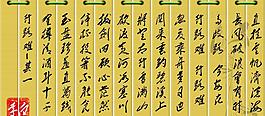 行路难 其一
金樽清酒斗十千
玉盘珍羞直万钱
停杯投箸不能食
拔剑四顾心茫然
欲渡黄河冰塞川
将登太行雪满山
闲来垂钓碧溪上
忽复乘舟梦日边
行路难 行路难
多歧路 今安在
长风破浪会有时
直挂云帆济沧海